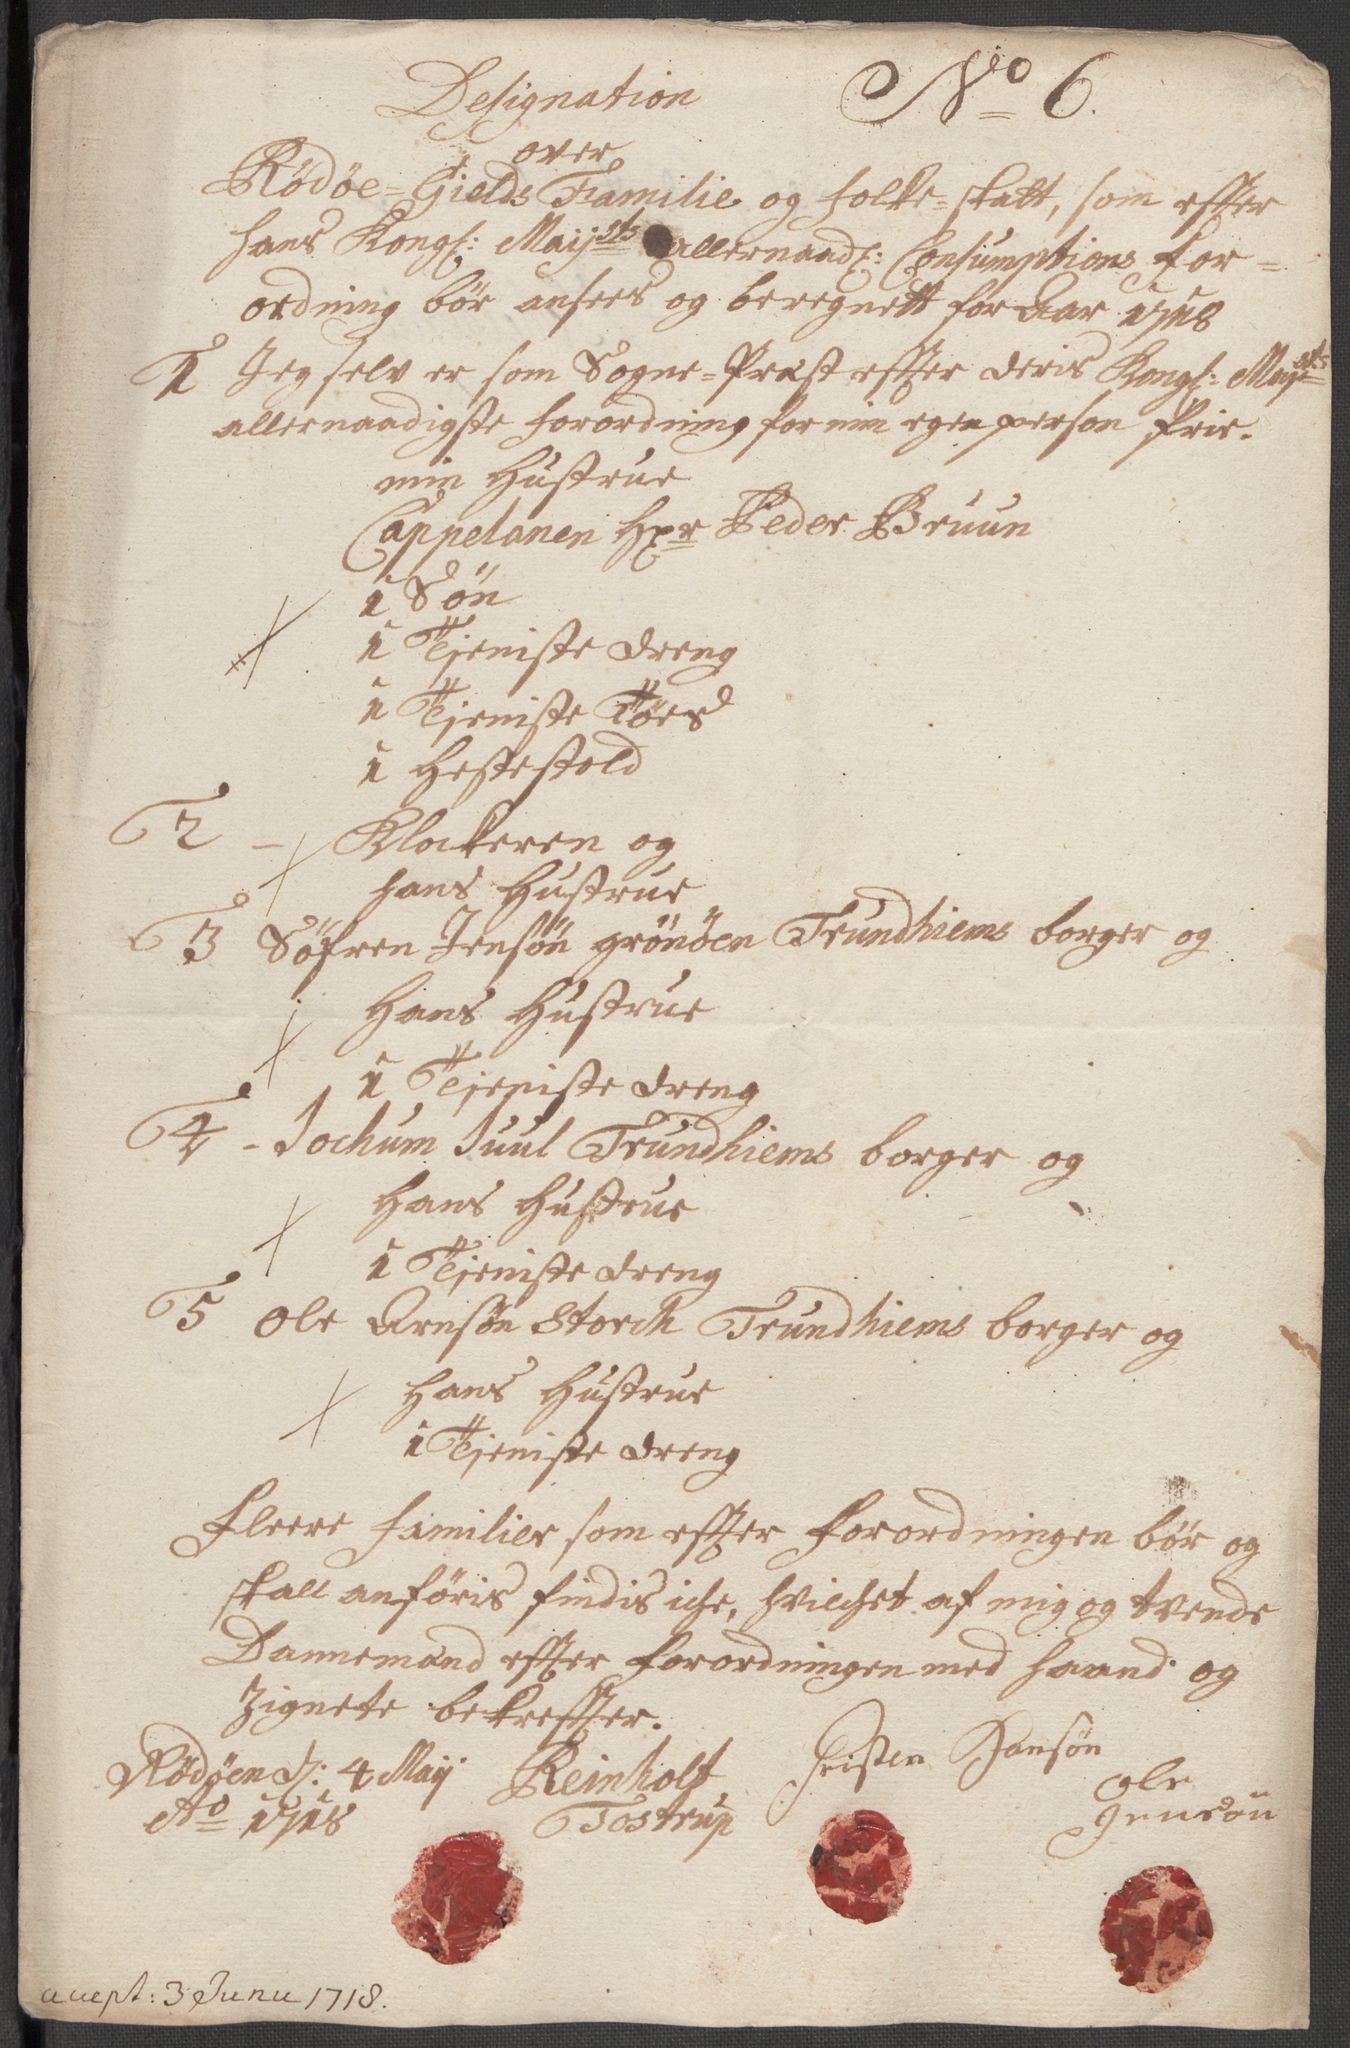 Designation
No 6.
over
Rödöe=Gields Familie og folke=skatt, som effter
hans Kongl: Maijsts allernaadl: Consumptions for=
ordning bör ansees og beregnett for Aar 1718
1 Jeg selv er som Sogne=Præst effter deris Kongl: Maijsts
allernaadigste forordning for min egen person frie.
min Hustrue
Cappelanen Hr Peder Bruun
1 Sön
1 Tjeniste dreng
1 Tjeniste Töes
1 Hestestold
2 – Klockeren og
hans Hustrue
3 Söfren Jensön grönöen Trundhiems borger og
Hans Hustrue
1 Tjeniste dreng
4 - Jochum Juul Trundhiems borger og
Hans Hustrue
1 Tjeniste dreng
5 Ole Arnsön Storch Trundhiems borger og
Hans Hustrue
1 Tjeniste dreng
Fleere familier som effter forordningen bör og
skall anföris findis iche, hvilchet af mig og tvende
Dannemænd effter forordningen med haand og
Zignete bekreffter.
Rödöen d: 4 Maij
Ao 1718
Reinholt
Tostrup
Christen Hansön
Ole
Jensön
accept: 3 Junii 1718.